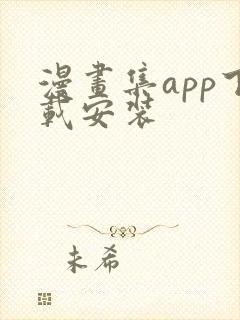 漫畫集app下
載安裝
未希